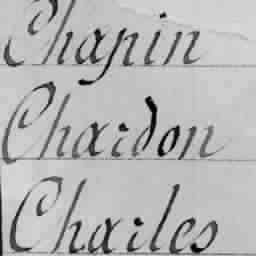 Chapin
Chardon
Charles